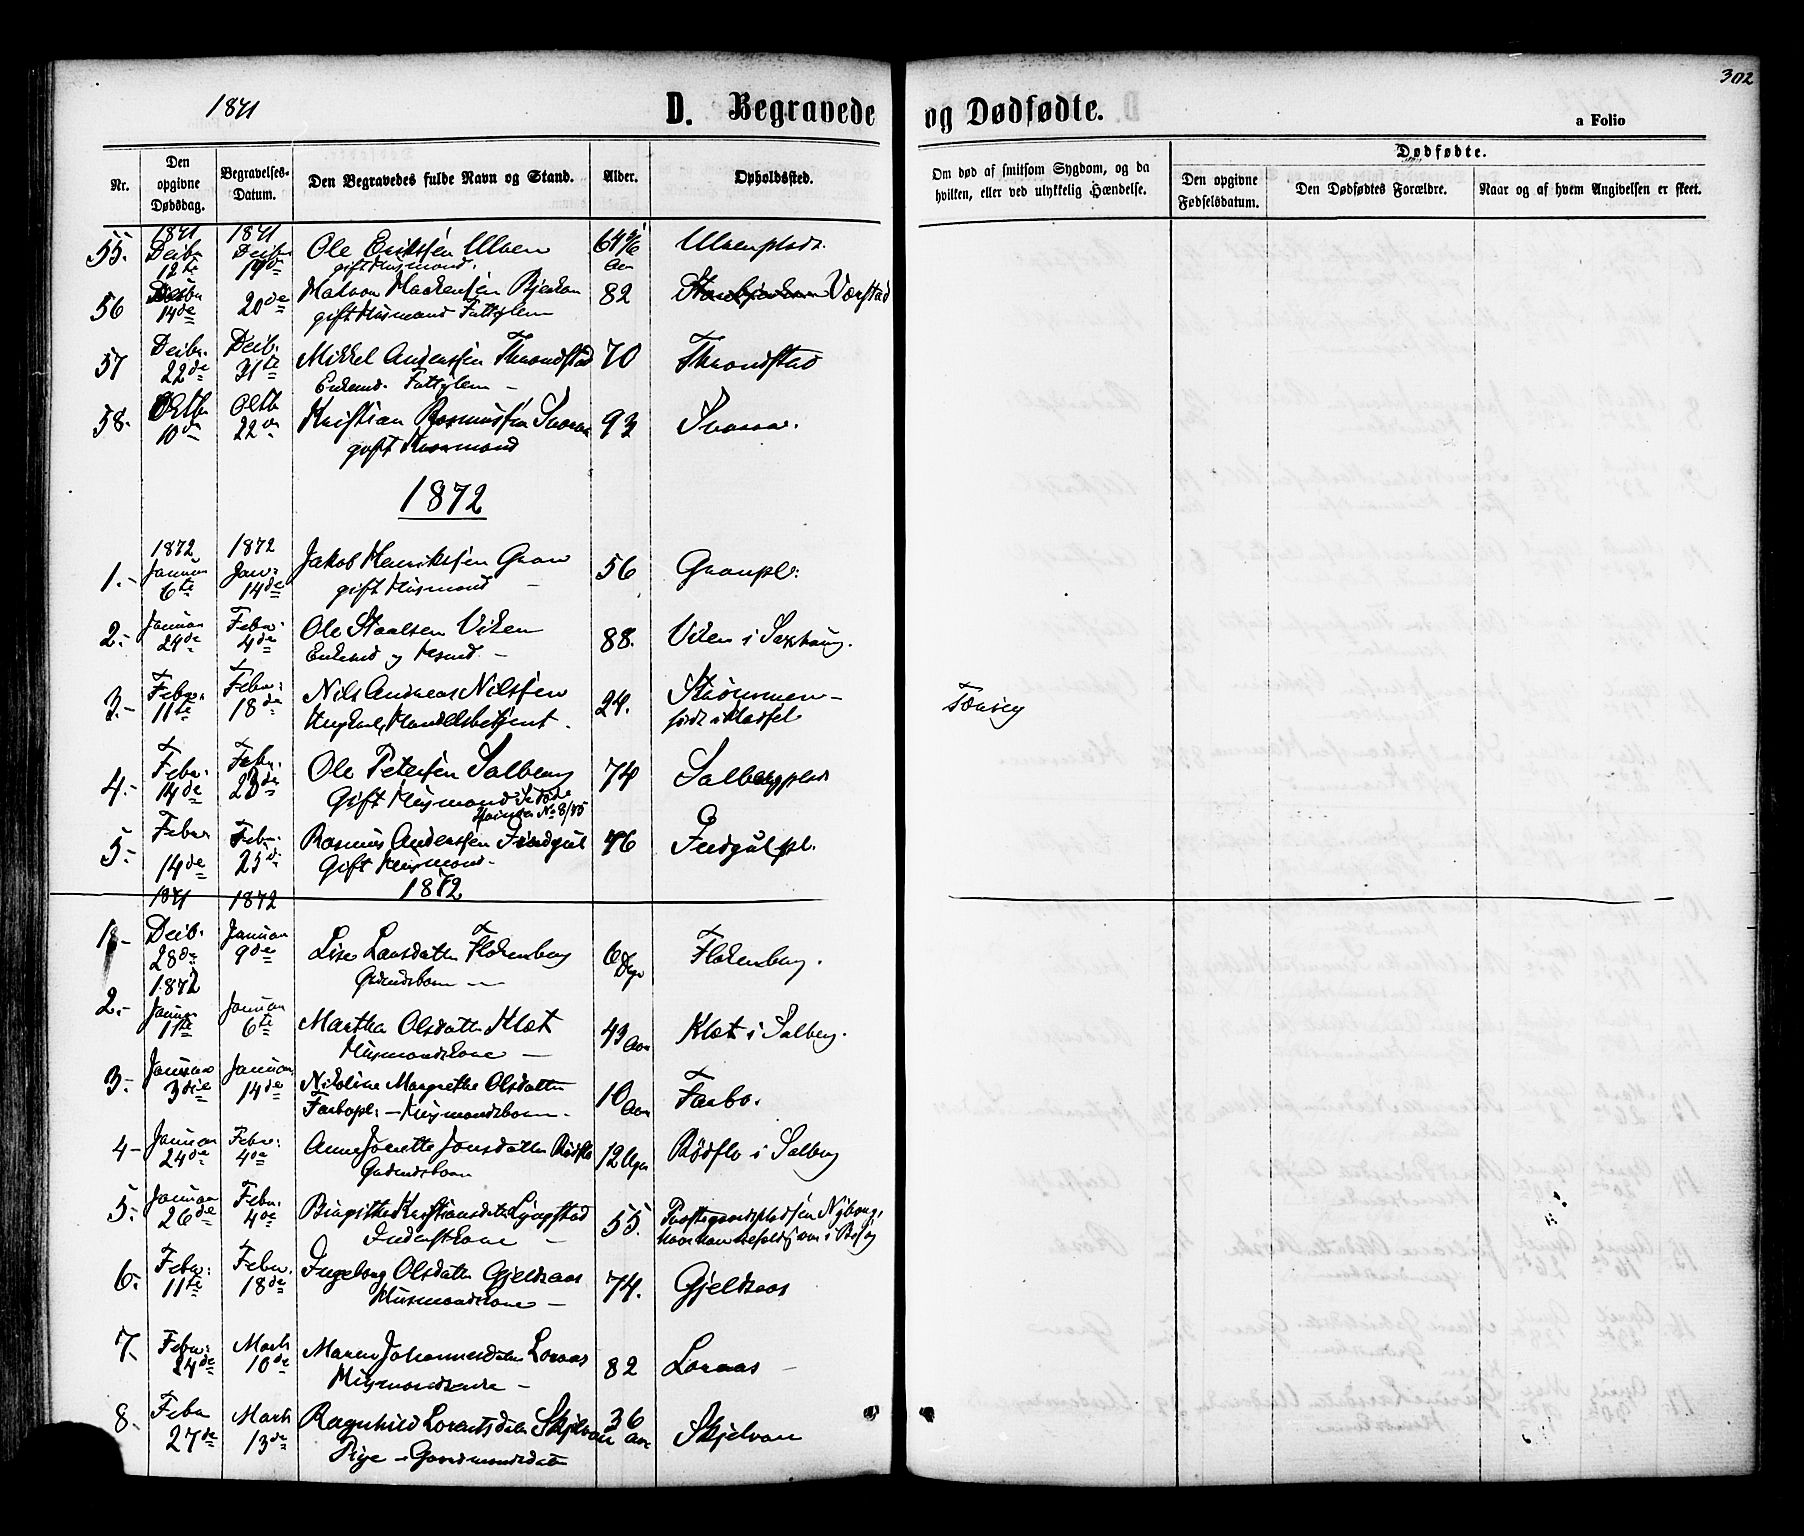 1871
D. Begravede
og Dødfødte.
302
a Folio
Nr.
Den opgivne Dødsdag.
Begravelses-Datum.
Den Begravedes fulde Navn og Stand.
Alder.
Opholdssted.
Om død af smitsom Sygdom, og da hvilken, eller ved ulykkelig Hændelse.
Dødfødte.
Den opgivne Fødselsdatum.
Den Dødfødtes Forældre.
Naar og af hvem Angivelsen er skeet.
1871 1871
55. Decbr 12te Decbr Ole Eriksen Ulven 64 Aar Ulvenplads.
gift Husmand.
56 14de 20de 82 Værstad
gift Husmand Fattiglem
57 Decbr. 22de Decb. 31te Mikkel Anderssen Throndstad 70 Throndstad
Enkemd. Fattiglem –
58. Octbr 10de Octb 22de Kristian Rasmussen 93
gift Husmand
1872
1872 1872
1. Januar 6te Jan: 14de Jakob Henriksen Gran 56 Granpl:
gift Husmand –
2. Januar Febr. 4de Ole Staalsen Viken 88. Viken i Saxhaug.
Enkemd og Husmd. –
3. Febr. 11te Febr: 18de Nils Andreas Nilssen 24. Strømmen –
Ungkarl, Handelsbetjent. født i
4. Febr. 14de Febr. 23de Ole Petersen Salberg 74 Salbergplads
Gift Husmand
5. Febr 14de Febr. 25de Rasmus Anderssen 46
Gift Husmand –
1872
1871 1872
1. Decb. 28de Januar 9de Lise Larsdatter Flekenberg 6 Dage Flekenberg.
Gaardmdsbarn –
1872
2. Januar 1ste Januar 6te Martha Olsdatter Klæt 43 Aar Klæt i Salberg.
Husmandskone –
3. Januar 3die Januar 14de Nikoline Margrethe Olsdatter 10 Aar Farbo.
Farbopl: – Husmandsbarn –
4 Januar 24de Febr: 4de Anne Jonette Jonsdatter Rødflo 12 Uger Rødflo i Salberg
Gaardmdsbarn
5. Januar 26de Febr. 4de Birgitha Kristiansdatter Lyngstad 55. Præstegaardspladsen Nyborg,
Inderstkone – hvor hun opholdt sig
6. Febr: 11te Febr. 18de Ingeborg Olsdatter Gjeldsaas 74. Gjeldsaas
Husmandskone –
7. Febr: 24de Marts 10de Maren Johannesdatter Loraas 82 Loraas –
Husmandsenke –
8. Febr 27de Marts 13de Ragnhild Lorentsdatter Skjelvan 36 Aar Skjelvan
Pige – Gaardmandsdatter